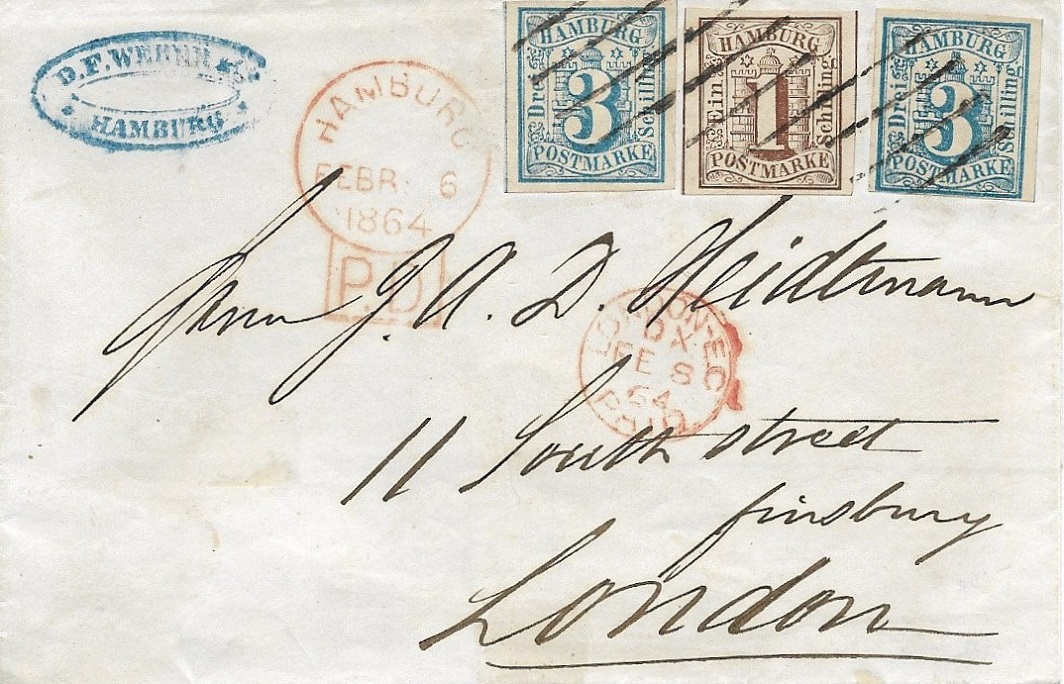 D. F. WEBER
HAMBURG
HAMBURG
FEBR. 6
1864
P.D.
HAMBURG
Drei
3
Schilling
POSTMARKE
HAMBURG
Ein
1
Schilling
POSTMARKE
HAMBURG
Drei
3
Schilling
POSTMARKE
Herrn J. A. D. Heidtmann
LONDON-EC
DX
FE 8
64
PAID
11 South street
finsbury
London